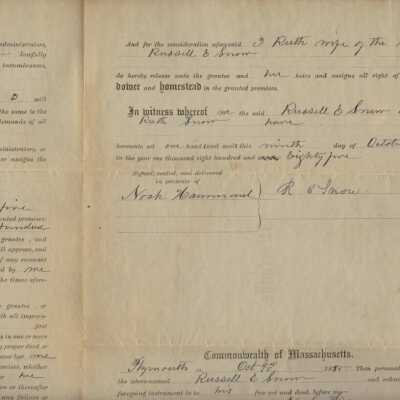 administrators,
lawfully
incumbrances,
will
the same to the
demands of all
administrators, or
or assigns the
five
granted premises
hundred
grantee , and
ll approve, and
f any covenant
d by me
the times afore-
grantee , or
th all improve-
for
s in one or more
g proper deed or
convey last
omises, whether
her
on or thereafter
any failure or
And for the consideration aforesaid I Ruth wife of the
Russell E Snow
do hereby release unto the grantee and her heirs and assigns all right of
dower and homestead in the granted premises.
In witness whereof we the said Russell E Snow
Ruth Snow have
hereunto set our hand and seal this ninth day of Octob
in the year one thousand eight hundred and Eighty five
Signed, sealed, and delivered
in presence of
Noah Hammond R E Snow
Commonwealth of Massachusetts.
Plymouth ss. Oct 9th 1885 Then person
the abovenamed Russell E Snow and ackn
foregoing instrument to be his free act and deed, before my